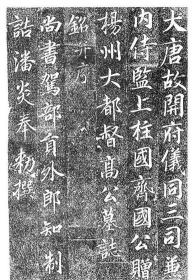 大唐故開府儀同三司兼
內侍監上柱國齊國公贈
揚州大都督高公墓誌
銘并序
尚書駕部員外郎知制
誥潘炎奉勑撰